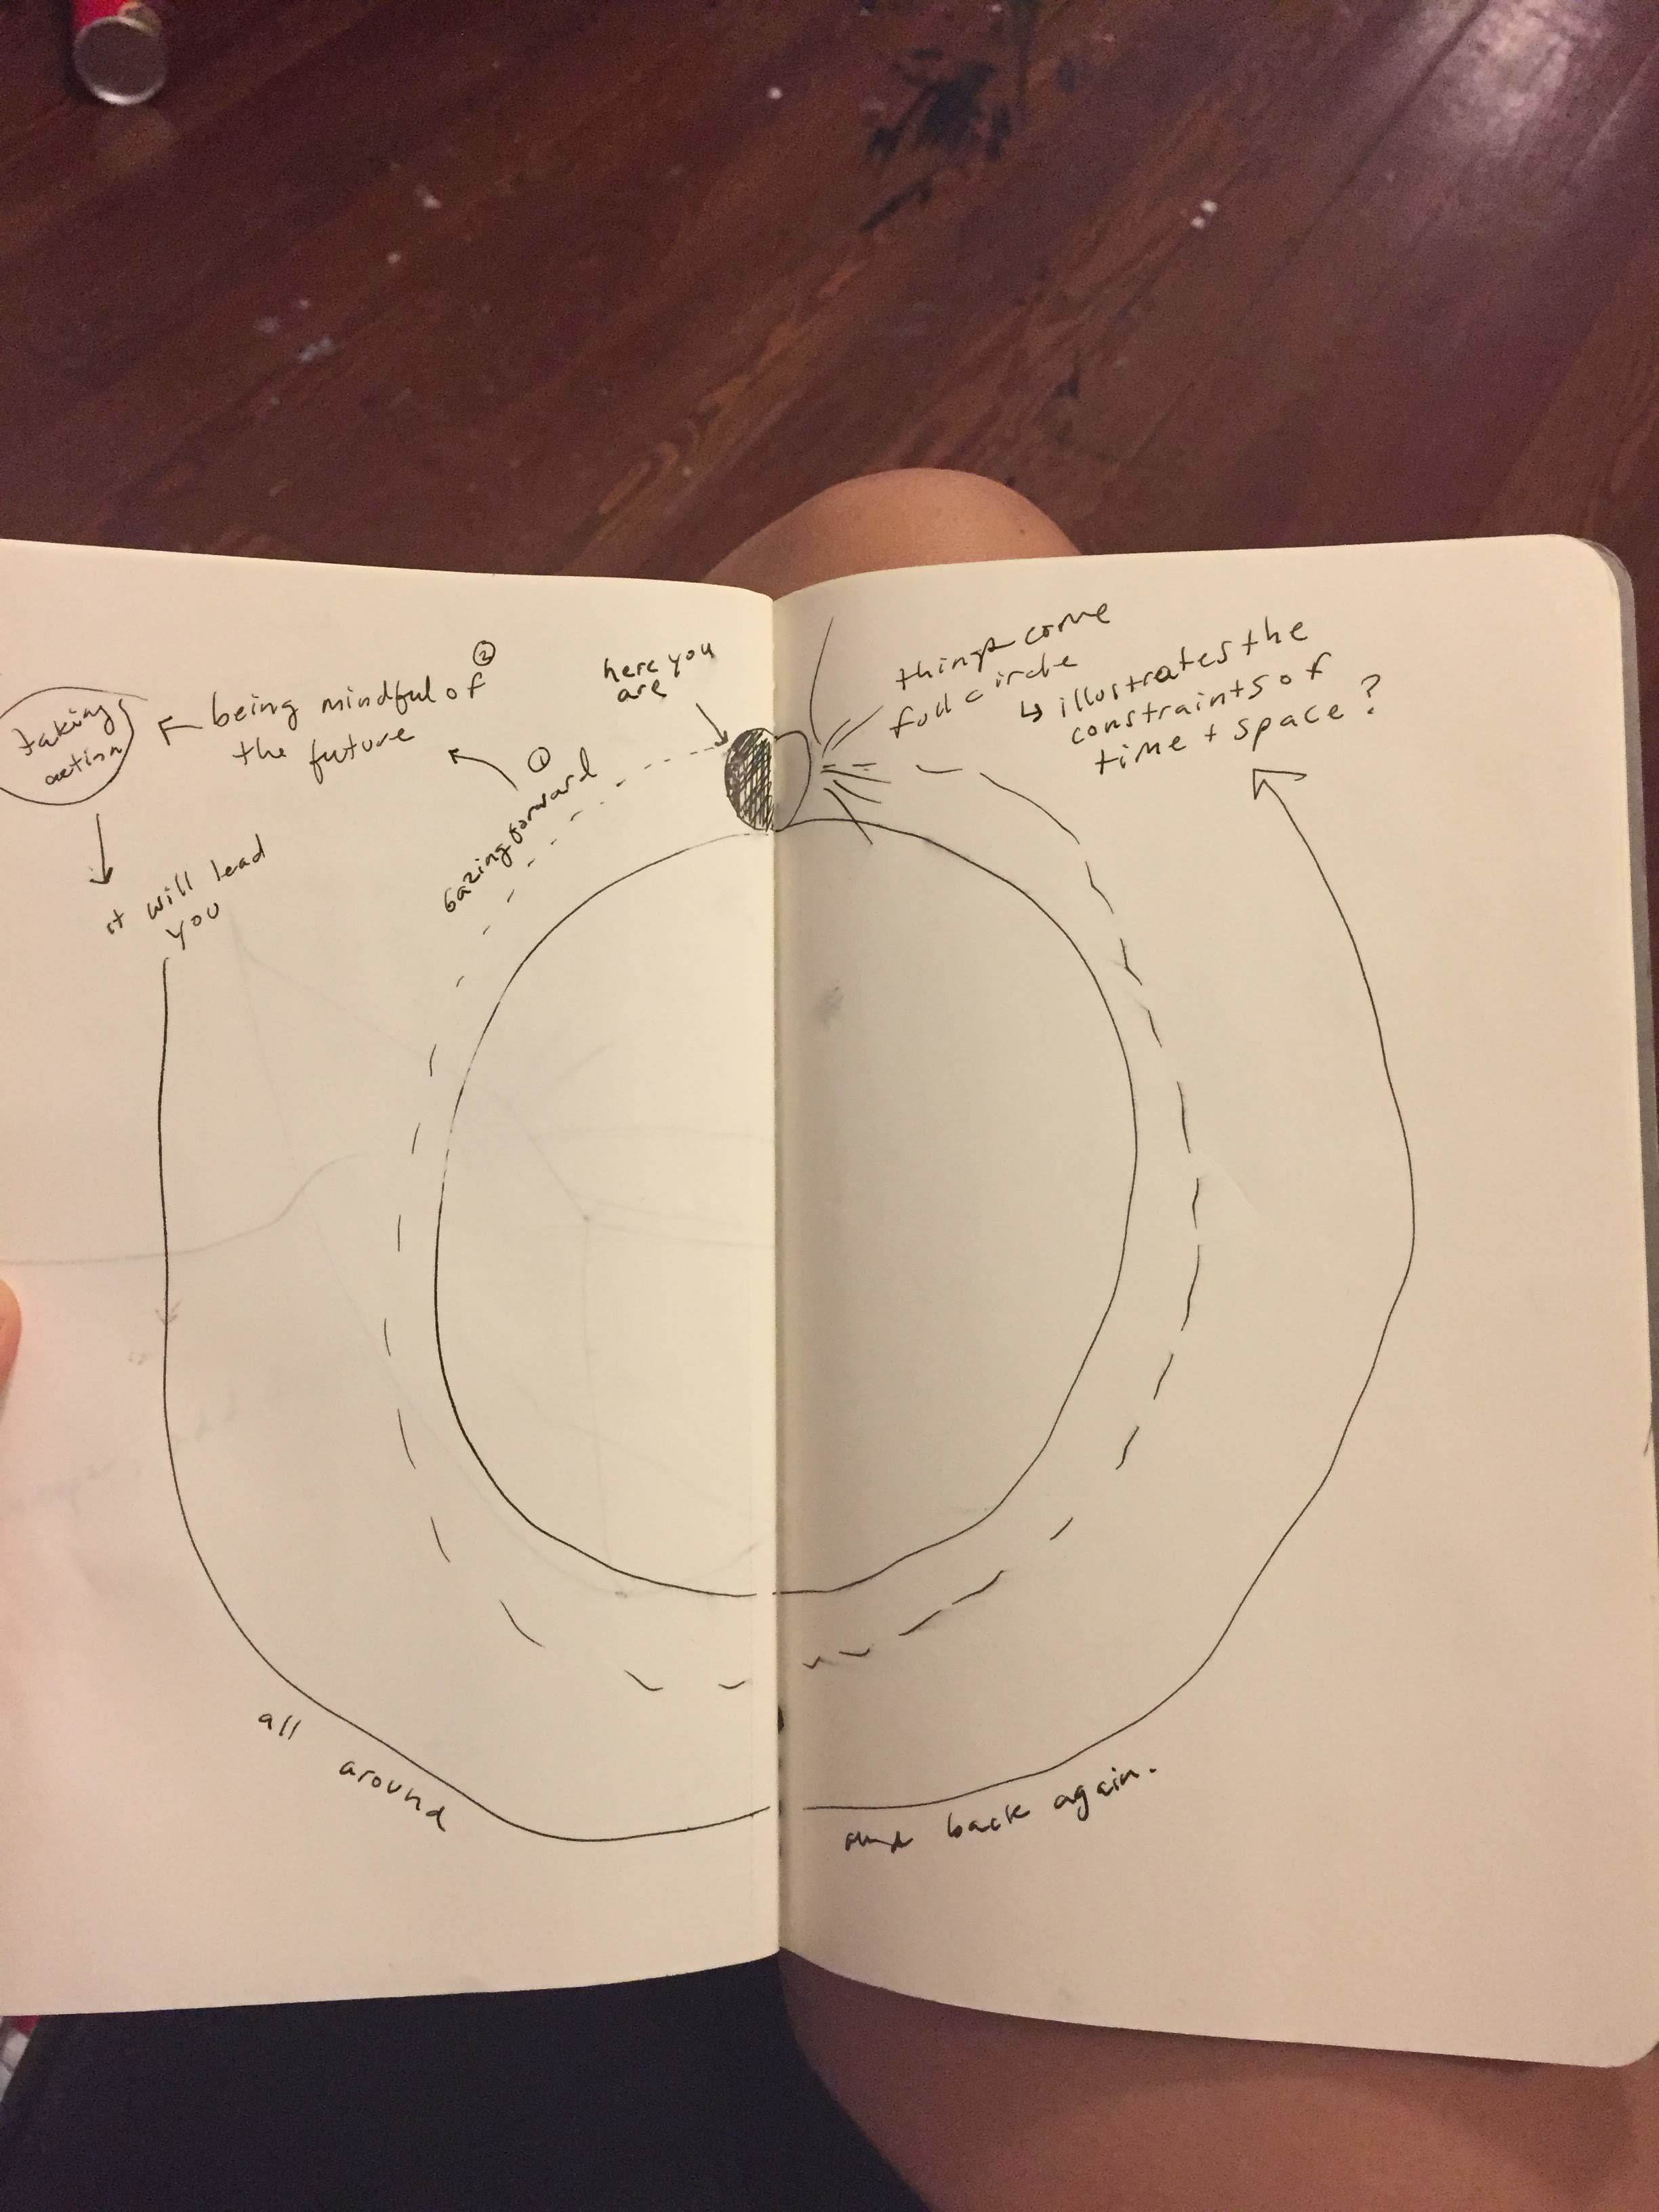 here you
are
①
Gazing forward
②
being mindful of
the future
taking
action
it will lead
you
all around
and back again.
things come
full circle
↳ illustrates the
constraints of
time + space?